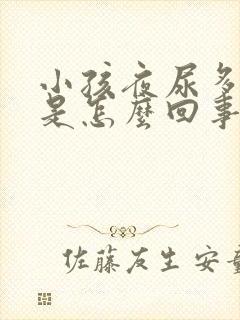 小孩夜尿多
是怎麼回事
佐藤友生 安童